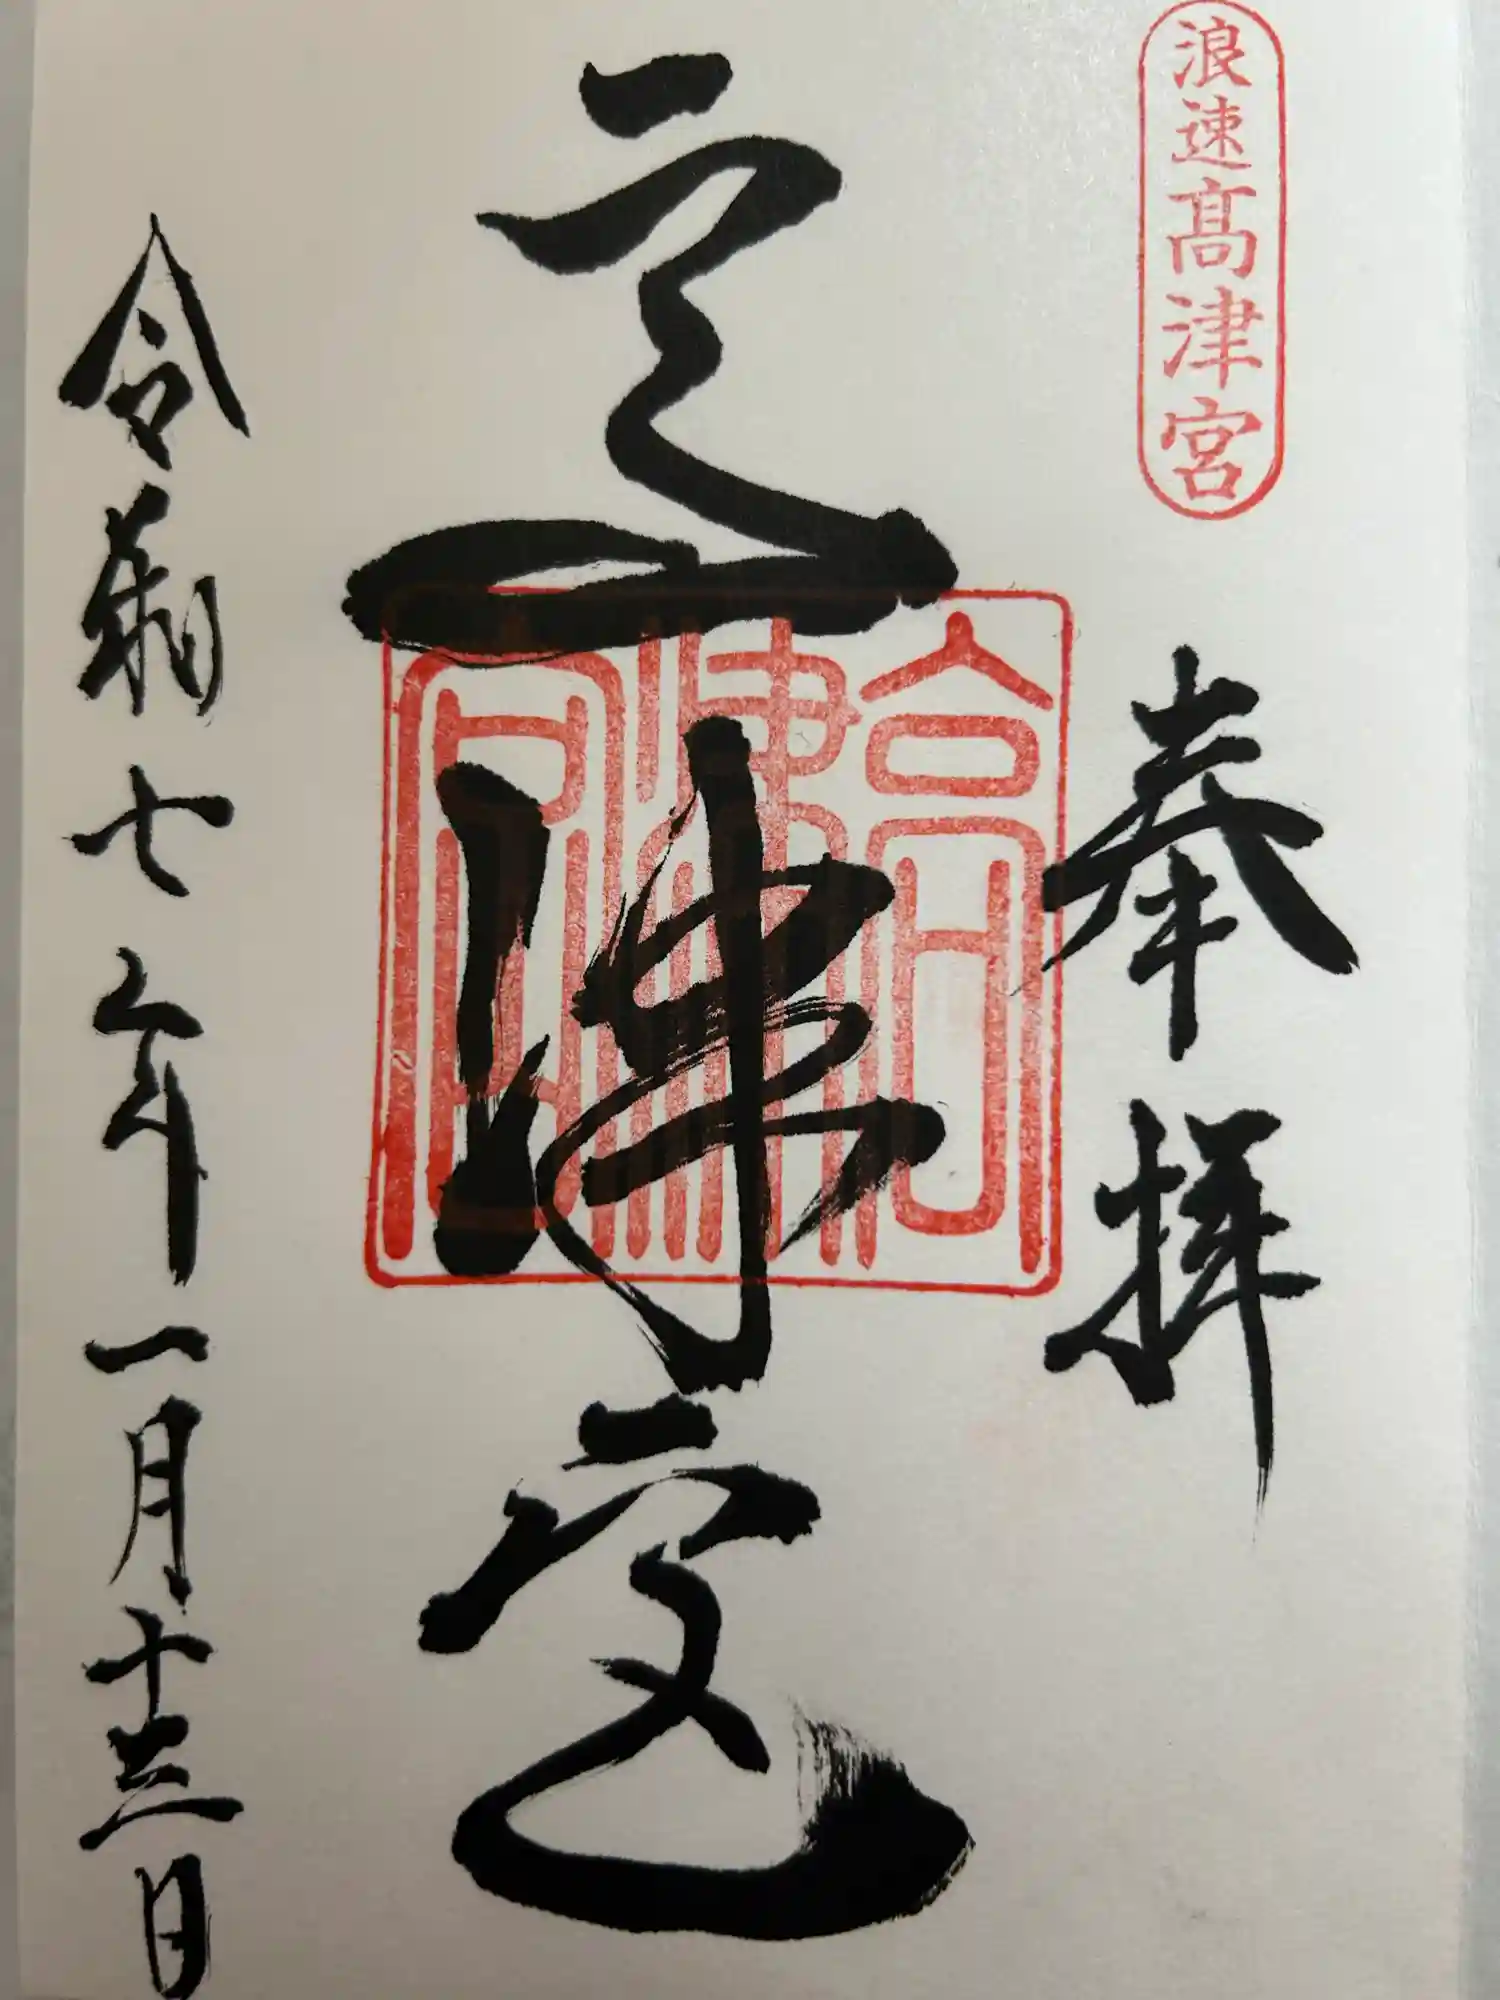 浪速髙津宮
奉拝
高津宮
高津宮
令和七年一月十三日